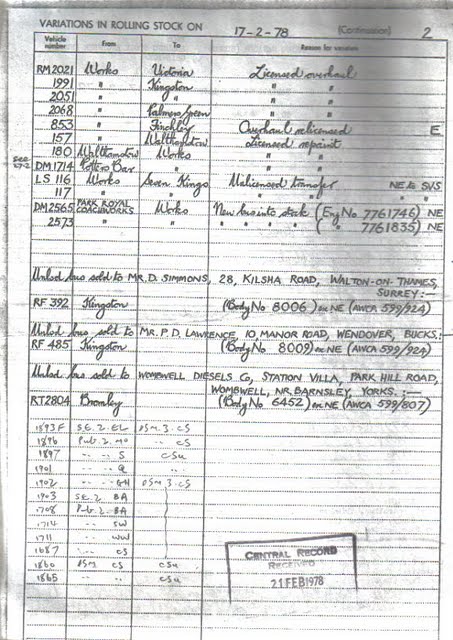 VARIATIONS IN ROLLING STOCK ON 17-2-78 (Continuation) 2
Vehicle number From To Reason for variation
RM 2021 Works Victoria Licensed overhaul
1991 " Kingston " "
2051 " " " "
2068 " Palmers Green " "
853 " Finchley Overhaul relicensed E
757 " Walthamstow Licensed repaint
180 Walthamstow Works " "
DM 1714 Potters Bar " " "
LS 116 Works Seven Kings Unlicensed transfer NE to SKS
117 " " " " "
DM 2565 PARK ROYAL COACHWORKS Works New bus into stock (Eng No 7761746) NE
2573 " " " " " " ( " 7761835) NE
Unlsd bus sold to MR. D. SIMMONS, 28, KILSHA ROAD, WALTON-ON-THAMES,
SURREY:—
RF 392 Kingston (Body No 8006) ex NE (AWCA 599/924)
Unlsd bus sold to MR. P.D. LAWRENCE, 10 MANOR ROAD, WENDOVER, BUCKS:—
RF 485 Kingston (Body No 8009) ex NE (AWCA 599/924)
Unlsd bus sold to WOMBWELL DIESELS Co, STATION VILLA, PARK HILL ROAD,
WOMBWELL, NR. BARNSLEY, YORKS. :—
RT2804 Bromley (Body No 6452) ex NE (AWCA 599/807)
1893 F S.E. 2. EL PSM. 3. CS
1896 Pub. 2. MO " CS
1897 " " S CSU
1901 " " Q " "
1902 " " GH PSM 3. CS
1903 S.E. 2. BA
1708 Pub. 2. BA
1714 " " SW
1711 " " WW
1687 " " CS
1860 PSM CS CS
1865 " " CSU
CENTRAL RECORD
RECEIVED
21 FEB 1978